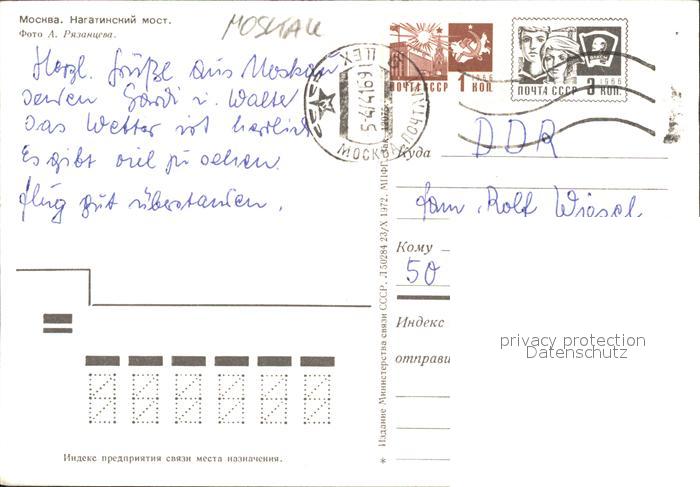 Москва. Нагатинский мост.
Фото А. Рязанцева.
MOSKAU
Herzl. Grüße aus Moskau
senden Gardi u. Walter
Das Wetter ist herrlich
Es gibt viel zu sehen.
Flug gut überstanden.
ПОЧТА СССР 1 КОП.
1966
ПОЧТА СССР 3 КОП.
1966
МОСКВА
Куда
DDR
Fam. Rolf Wiesel
Кому
50
Индекс
отправи
privacy protection
Datenschutz
Издание Министерства связи СССР. Л 50284 23/X 1972. МПФГ. Зак.
Индекс предприятия связи места назначения.